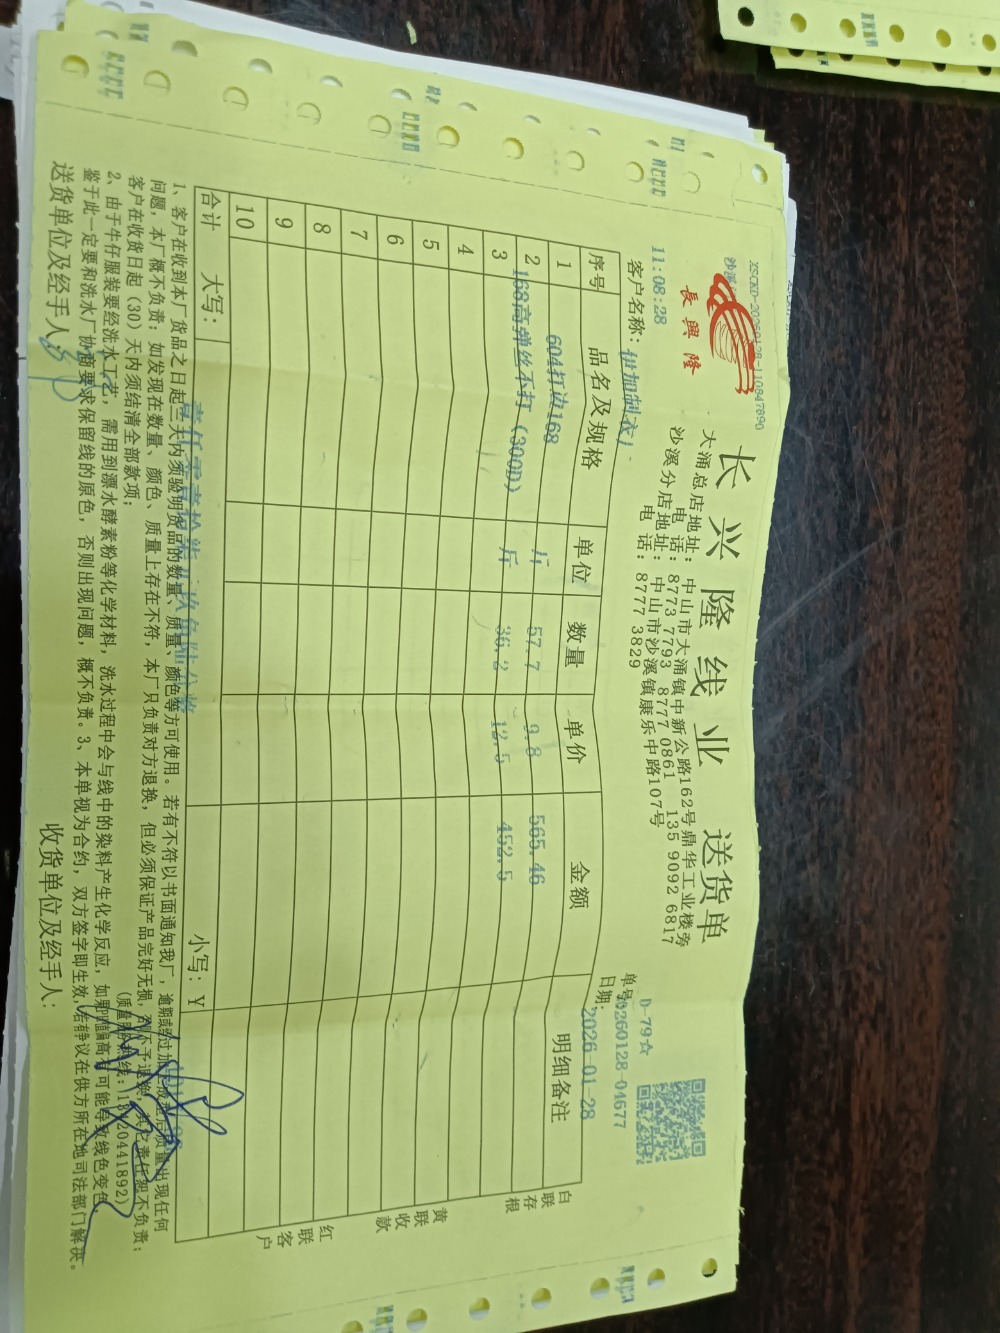 XSCKD-20260128-110847890
長興隆
长兴隆线业 送货单
大涌总店地址：中山市大涌镇中新公路162号鼎华工业楼旁
电 话：8773 7793 8777 0861 135 9092 6817
沙溪分店地址：中山市沙溪镇康乐中路107号
电 话：8777 3829
11:08:28
D-79☆
单号：20260128-04677
客户名称：伊加制衣厂
日期：2026-01-28
序号 品名及规格 单位 数量 单价 金额 明细备注
1 604打边168 斤 57.7 9.8 565.46
2 168高弹丝不打（300D） 斤 36.2 12.5 452.5
3
4
5
6
7
8
9
10
合计 大写： 小写：￥
白联存根
黄联收款
红联客户
1、客户在收到本厂货品之日起三天内须验明货品的数量、质量、颜色等方可使用。若有不符以书面通知我厂，逾期或经过加工或是后质量出现任何
问题，本厂概不负责；如发现在数量、颜色、质量上存在不符，本厂只负责对方退换，但必须保证产品完好无损，否不予退换，其它责任恕不负责；
客户在收货日起（30）天内须结清全部款项；
（质量 热线：13420441892）
2、由于牛仔服装要经洗水工艺，需用到漂水酵素粉等化学材料，洗水过程中会与线中的染料产生化学反应，如果 值偏高有可能导致线色变色，
鉴于此一定要和洗水厂协商要求保留线的原色，否则出现问题，概不负责。3、本单视为合约，双方签字即生效，若有争议在供方所在地司法部门解决。
送货单位及经手人： 收货单位及经手人：